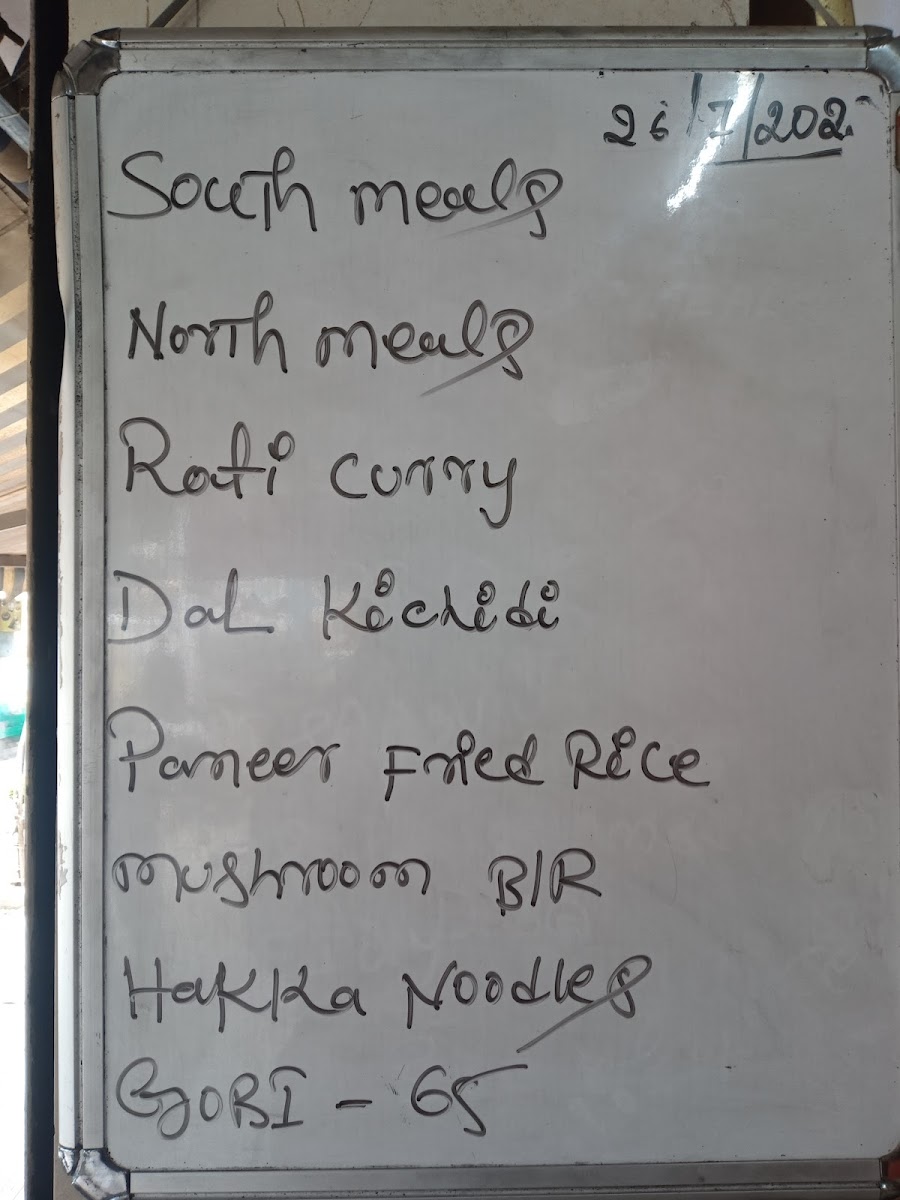 26/7/202
South meals
North meals
Roti curry
Dal Kichidi
Paneer Fried Rice
mushroom B/R
Hakka Noodles
GOBI - 65